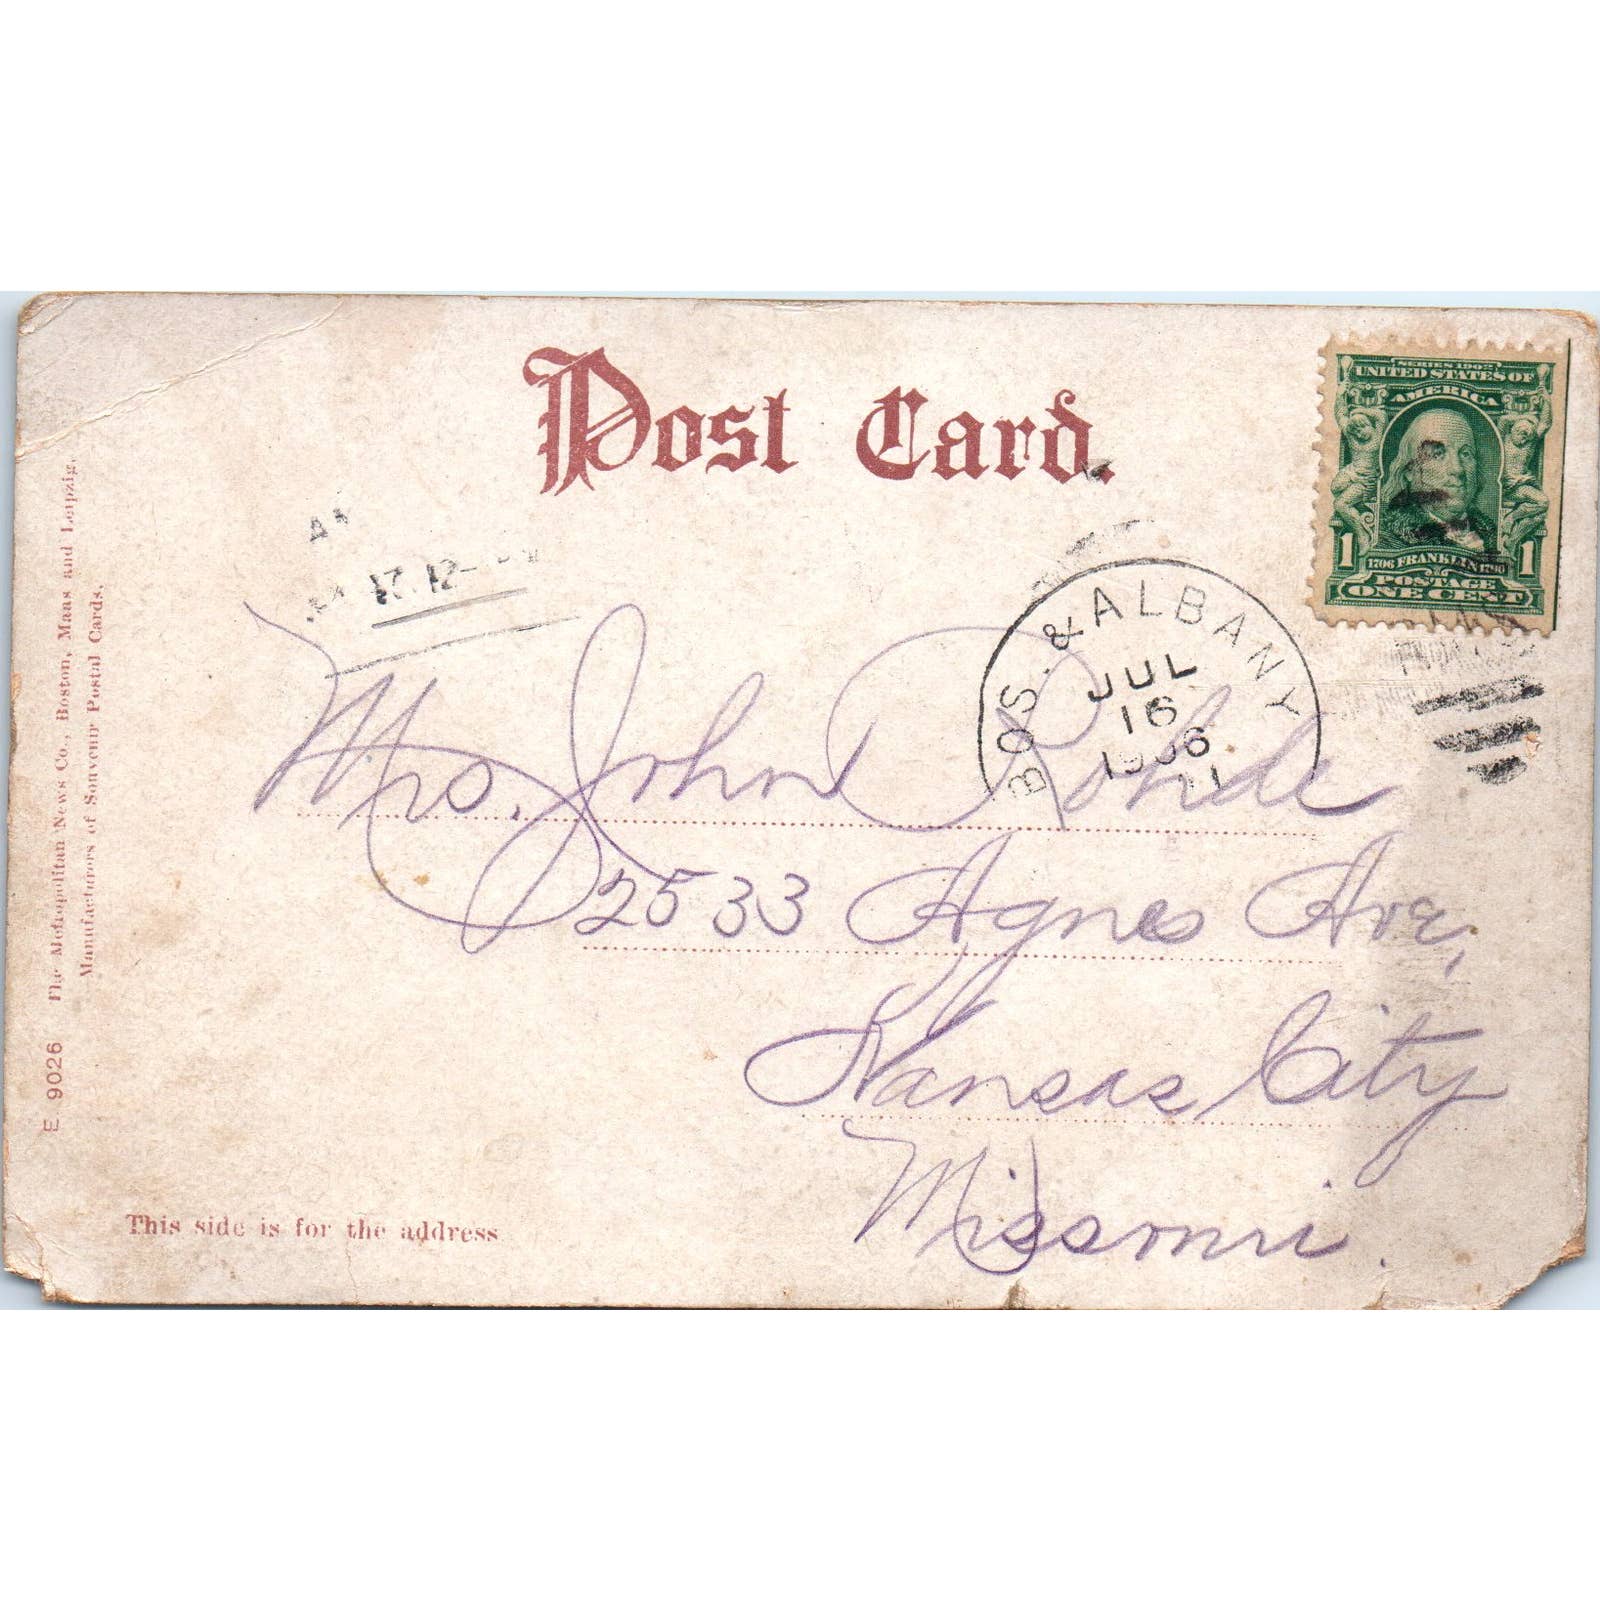 Post Card.
SERIES 1902
UNITED STATES OF
AMERICA
1706 FRANKLIN 1790
1 1
POSTAGE
ONE CENT
17. 12
BOS. & ALBANY
JUL
16
1906
Mrs. John Rohde
2533 Agnes Ave,
Kansas City
Missouri.
E 9026 The Metropolitan News Co., Boston, Mass and Leipzig,
Manufacturers of Souvenir Postal Cards.
This side is for the address